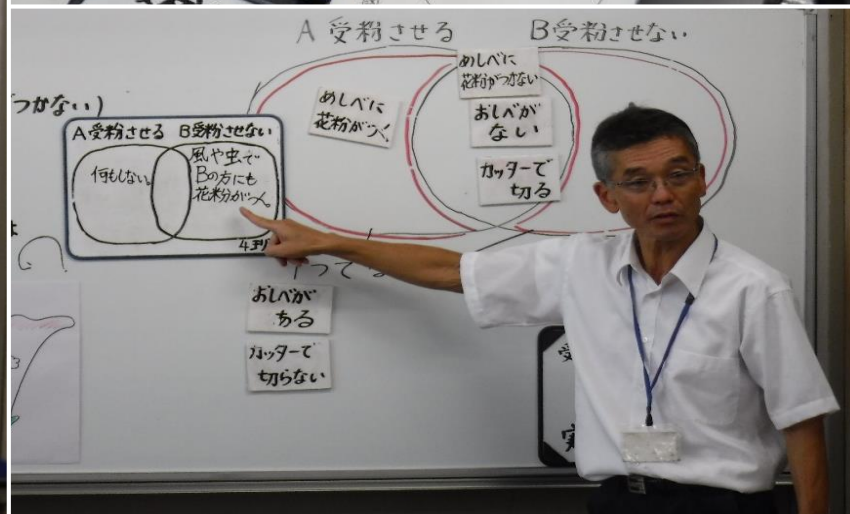 A 受粉させる B受粉させない
めしべに
花粉がつかない
めしべに
花粉がつく
おしべが
ない
カッターで
切る
つかない)
A受粉させる B受粉させない
何もしない。
風や虫で
Bの方にも
花粉がつく。
4班
おしべが
ある
カッターで
切らない